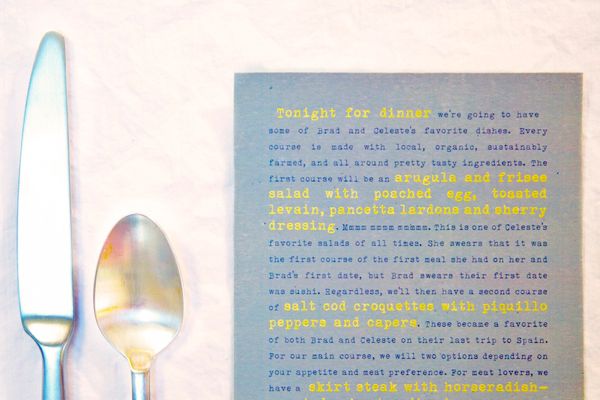 Tonight for dinner we're going to have
some of Brad and Celeste's favorite dishes. Every
course is made with local, organic, sustainably
farmed, and all around pretty tasty ingredients. The
first course will be an arugula and frisee
salad with poached egg, toasted
levain, pancetta lardons and sherry
dressing. Mmmm mmmm mmmmm. This is one of Celeste's
favorite salads of all times. She swears that it was
the first course of the first meal she had on her and
Brad's first date, but Brad swears their first date
was sushi. Regardless, we'll then have a second course
of salt cod croquettes with piquillo
peppers and capers. These became a favorite
of both Brad and Celeste on their last trip to Spain.
For our main course, we will two options depending on
your appetite and meat preference. For meat lovers, we
have a skirt steak with horseradish-